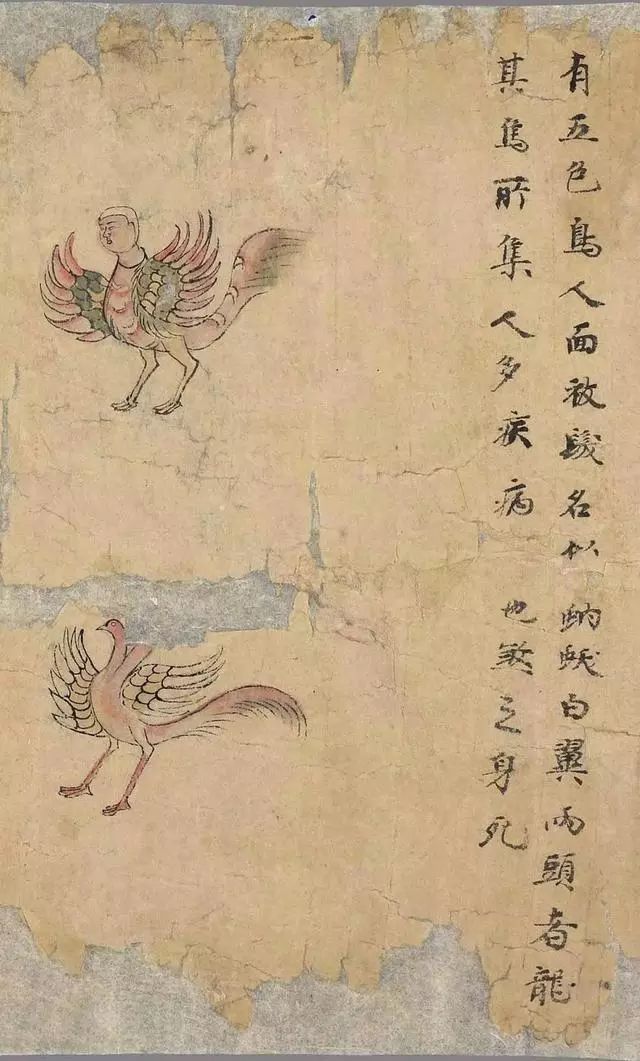 有五色鳥人面被髮名似白翼兩頭者龍
其鳥所集人多疾病 也煞之身死